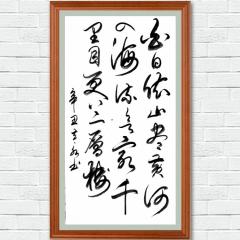 白日依山尽黄河
入海流欲穷千
里目更上一层楼
辛丑